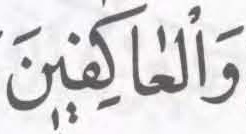 وَالْعٰاكِفٖينَ